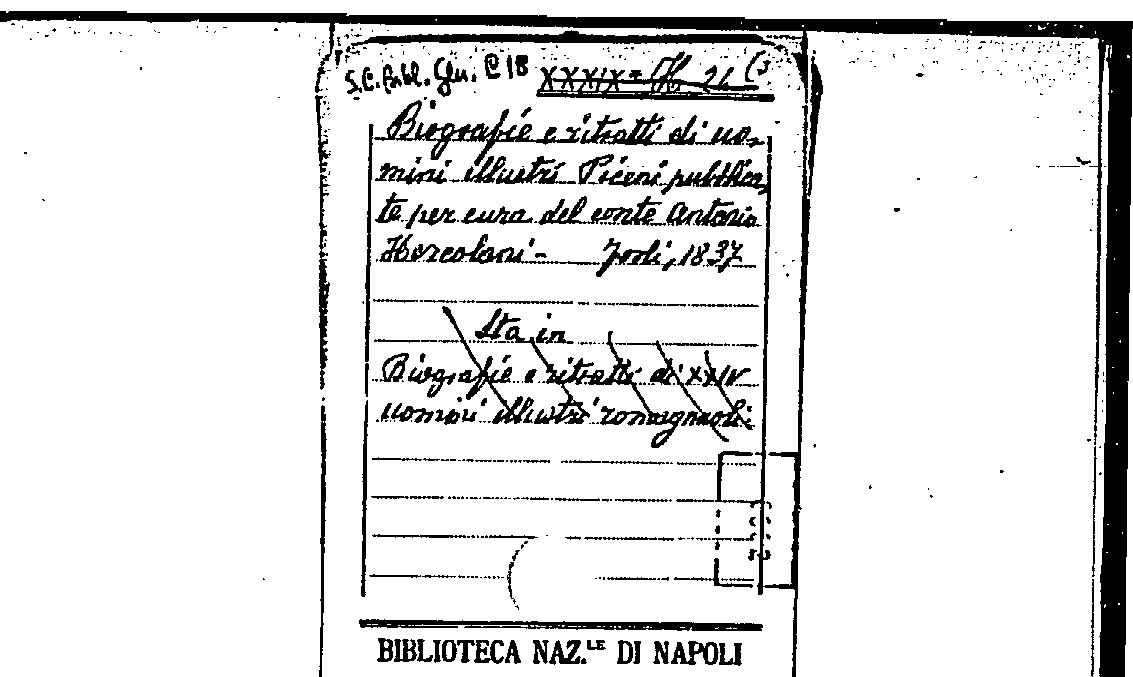 S.C. Bibl. Gen. C 18 XXXIX = 26 (3
Biografie e ritratti di uo-
mini illustri Piceni pubblica-
te per cura del conte Antonio
Hercolani - Forlì, 1837
Sta in
Biografie e ritratti di XXIV
uomini illustri romagnoli.
BIBLIOTECA NAZ.LE DI NAPOLI